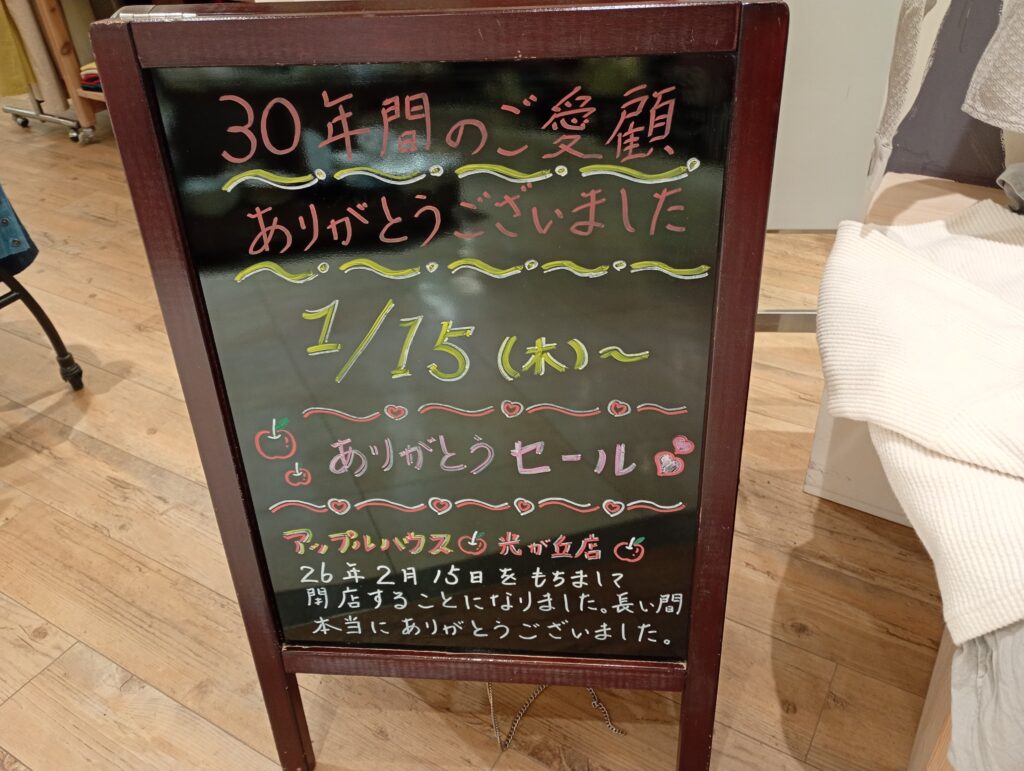 30年間のご愛顧
ありがとうございました
1/15(木)~
ありがとうセール
アップルハウス 光が丘店
26年2月15日をもちまして
閉店することになりました。長い間
本当にありがとうございました。